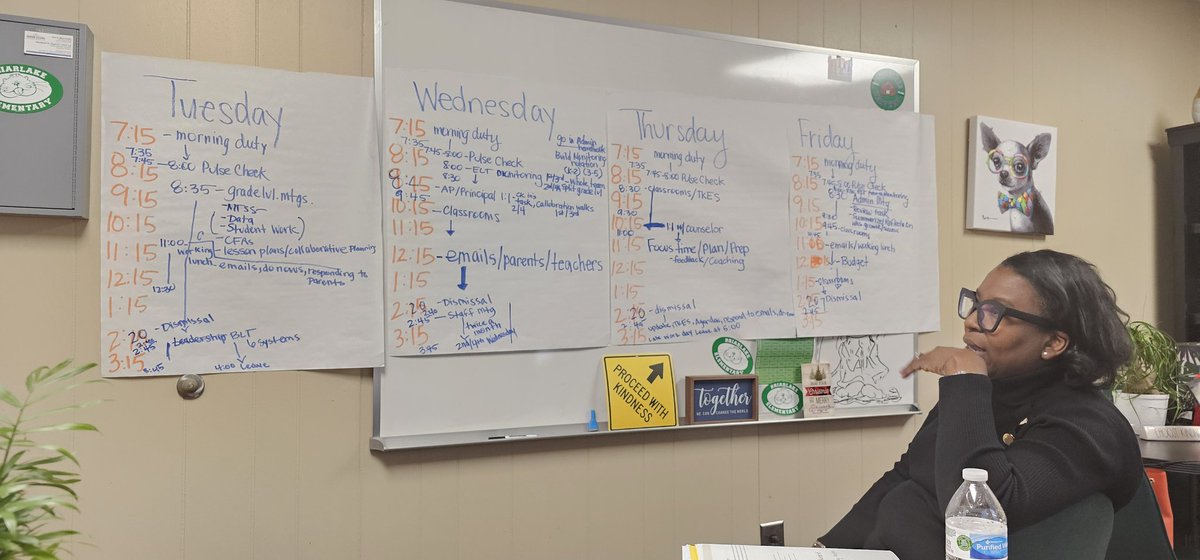 BRIARLAKE
ELEMENTARY
Tuesday
7:15 - morning duty
7:35
8:15 7:45 - 8:00 Pulse Check
9:15 8:35 - grade lvl. mtgs.
- MTSS
10:15 - Data
- Student Work
11:15 11:00 - CFAs
working - lesson plans/collaborative planning
12:15 lunch - emails, do nows, responding to
parents
12:30
1:15
2:20 - Dismissal
2:45 Leadership BLT systems
3:15 3:45 4:00 Leave
Wednesday
7:15 morning duty
7:35
8:15 7:45-8:00 - Pulse Check
8:00 - ELT monitoring
8:30
9:45
9:45 - AP/Principal 1:1
10:15 - Classrooms
11:15
12:15 - emails/parents/teachers
1:15
2:20 - Dismissal
2:40
2:45 - Staff mtg
3:15 twice a
month
3:45 2nd/4th Wednesday
go in Admin
Build Monitoring
rotation
(K-2) (3-5)
whole team
task, collaboration walks
2/4 1st/3rd
Thursday
7:15 morning duty
7:35
8:15 7:45-8:00 Pulse Check
8:30 - classrooms/TKES
9:15
9:30
10:15 1:1 w/counselor
11:00
11:15 Focus time/Plan/Prep
- feedback/Coaching
12:15
1:15
2:20 - dismissal
2:45
3:15 update TKES, Agendas, respond to emails,
late work day leave at 5:00
Friday
7:15 morning duty
7:35
8:15 Pulse Check
8:30 Admin Mtg
9:15 - Review task
9:30
10:15 9:45 - classrooms
11:00 - emails/working lunch
12:15 - Budget
1:15 - classrooms
2:20 - Dismissal
2:45
3:15
PROCEED WITH
KINDNESS
together
WE CAN CHANGE THE WORLD
BRIARLAKE
ELEMENTARY
BRIARLAKE
ELEMENTARY
MERRY
Purified